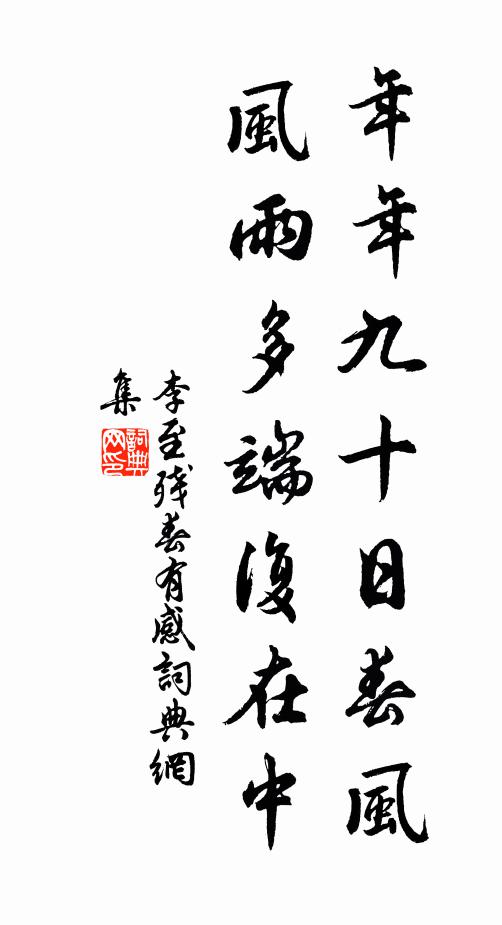 年年九十日春風
風雨多端復在中
李至殘春有感詞典網
集
詞典
网印